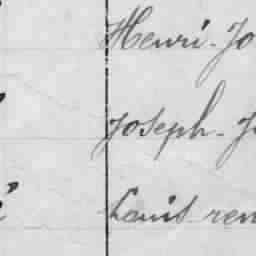 Henri-Jo
Joseph-J
Louis ren